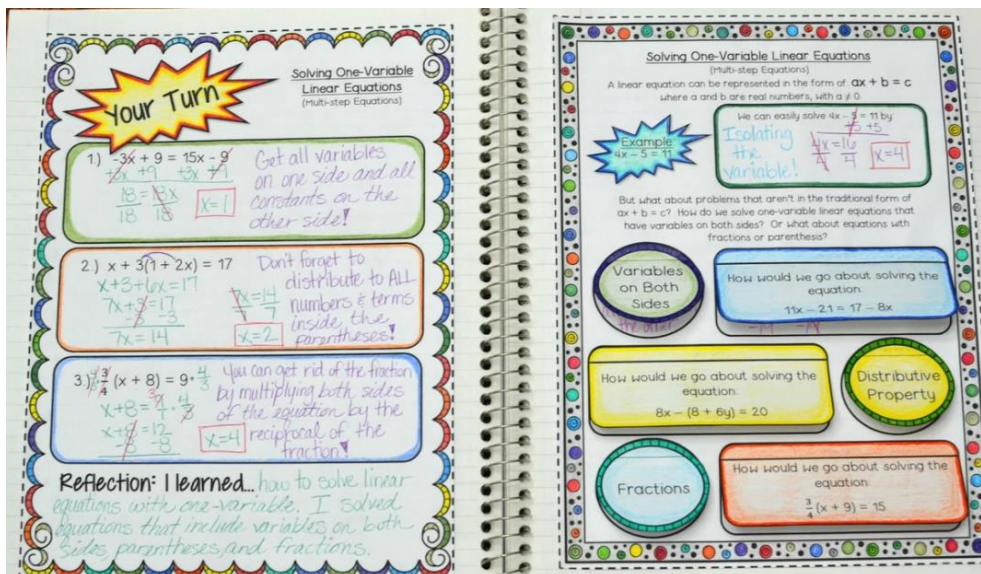 Your Turn
Solving One-Variable
Linear Equations
(Multi-step Equations)
1.) -3x + 9 = 15x - 9
+3x +9 +3x +9
18 = 18x
18 18
x=1
Get all variables
on one side and all
constants on the
other side!
2.) x + 3(1 + 2x) = 17
x+3+6x=17
7x+3=17
-3 -3
7x = 14
7x=14
7 7
x=2
Don't forget to
distribute to ALL
numbers & terms
inside the
parentheses!
3.) 4/3 · 3/4 (x + 8) = 9 · 4/3
x+8 = 9/1 · 4/3
x+8=12
-8 -8
x=4
You can get rid of the fraction
by multiplying both sides
of the equation by the
reciprocal of the
fraction!
Reflection: I learned... how to solve linear
equations with one-variable. I solved
equations that include variables on both
sides, parentheses, and fractions.
Solving One-Variable Linear Equations
(Multi-step Equations)
A linear equation can be represented in the form of ax + b = c
where a and b are real numbers, with a ≠ 0.
Example:
4x - 5 = 11
We can easily solve 4x - 5 = 11 by:
+5 +5
Isolating
the
variable!
4x=16
4 4
x=4
But what about problems that aren't in the traditional form of
ax + b = c? How do we solve one-variable linear equations that
have variables on both sides? Or what about equations with
fractions or parenthesis?
Variables
on Both
Sides
the other
How would we go about solving the
equation:
11x - 21 = 17 - 8x
How would we go about solving the
equation:
8x - (8 + 6y) = 20
Distributive
Property
Fractions
How would we go about solving the
equation:
3/4 (x + 9) = 15